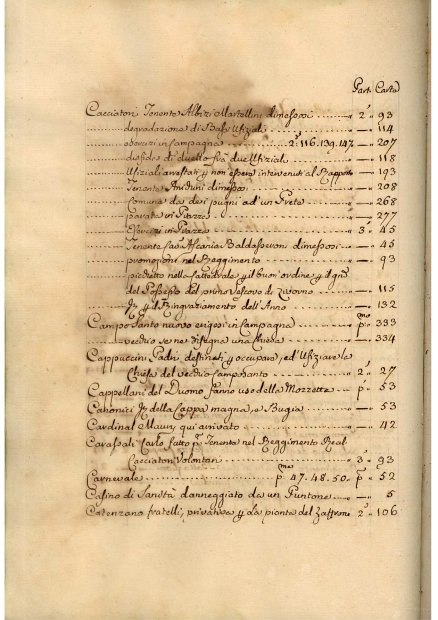 Part. Carta
Cacciatori Tenente Albizi Martellini dimessosi 2° „ 93
degradazione di Bassi Ufiziali — „ 114
esercizi in Campagna 2° 116. 139. 147. — „ 207
disfide di duello fra due Ufiziali — „ 118
Ufiziali arrestati p non essere intervenuti al Rapporto — „ 193
Tenente dimessosi — „ 208
Comune da dei pugni ad un Prete — „ 268
parata in Piazza — „ 277
Esercizi in Piazza 3° „ 45
Tenente Cav. Ascanio Baldasseroni dimessosi — „ 45
promozioni nel Reggimento — „ 93
picchetto nella Cattedrale p il buon ordine p il
del Possesso del primo Vescovo di Livorno — „ 115
p il Ringraziamento dell'Anno — „ 132
Campo Santo nuovo erigesi in Campagna pmo „ 333
vecchio se ne disegna una Chiesa — „ 334
Cappuccini Padri destinati p occupare, ed Ufiziare la
Chiesa del vecchio Campo Santo 2° „ 27
Cappellani del Duomo fanno uso della Mozzetta p° „ 53
Canonici della Cappa magna, e Bugia — „ 53
Cardinal Maury qui arrivato — „ 42
Carassali Carlo fatto Tenente nel Reggimento Real
Cacciatori Volontari 3° „ 93
Carnevale pma 47. 48. 50. p° „ 52
Casino di Sanità danneggiato da un Puntone — „ 5
Catanzano fratelli, privativa p la pianta del Zaffrone 2° „ 106